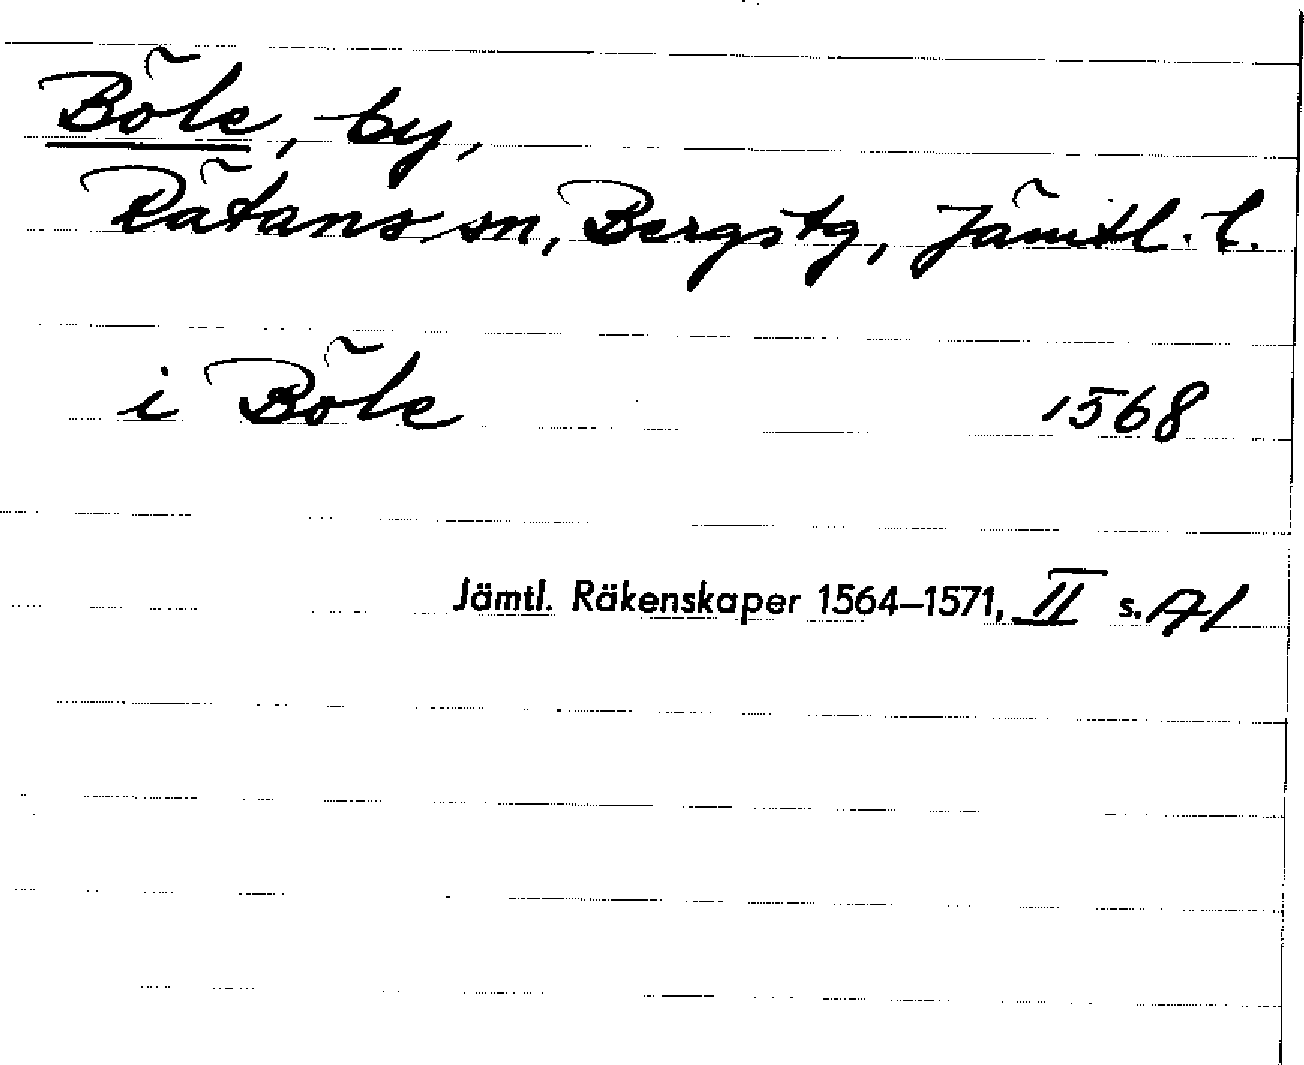 Böle, by,
Rätans sn, Bergs tg, Jämtl. l.
i Böle 1568
Jämtl. Räkenskaper 1564–1571, II s.